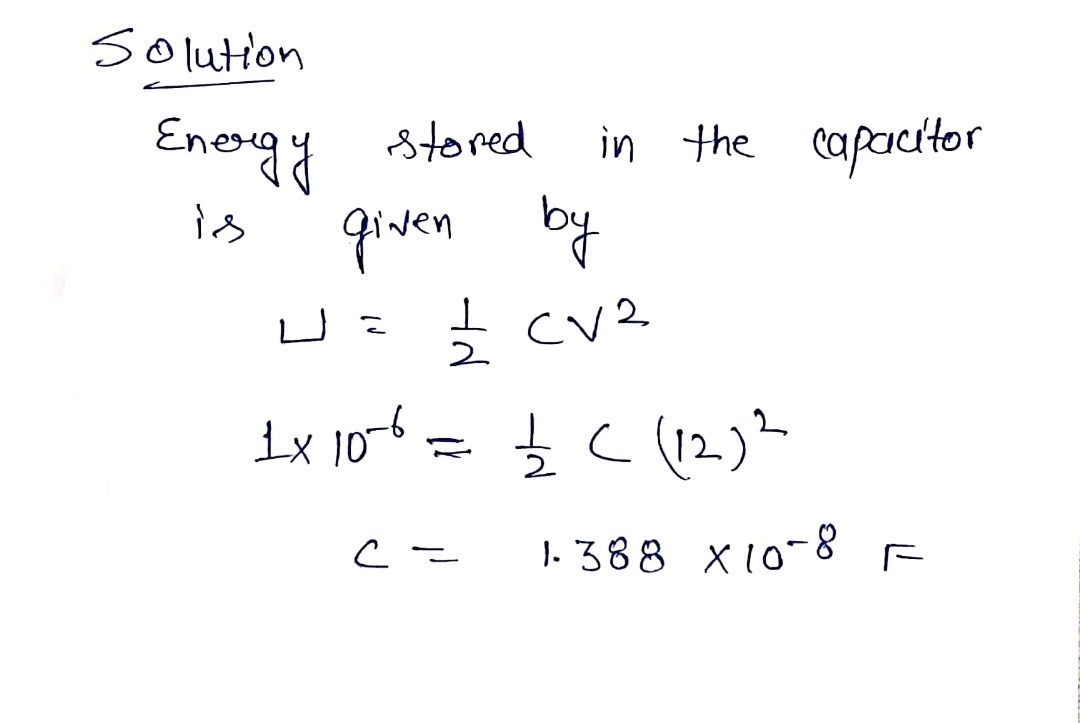 Solution
Energy stored in the capacitor
is given by
U = 1/2 CV²
1x 10⁻⁶ = 1/2 C (12)²
C = 1.388 x10⁻⁸ F